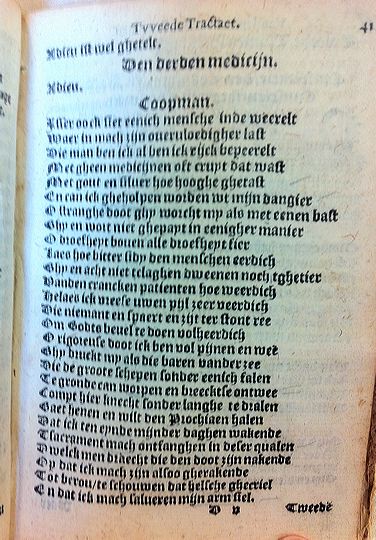 Tvveede Tractaet. 41
Adieu ist wel ghestelt.
Den derden medicijn.
Adieu.
Coopman.
Isser ooch siet eenich mensche inde weerelt
Waer in mach zijn oueruloedigher last
Die man ben ick al ben ick rijck bepeerelt
Met gheen medicijnen oft cruyt dat wast
Met gout en siluer hoe hooghe ghetast
En can ick gheholpen worden wt mijn dangier
O stranghe doot ghy worcht my als met eenen bast
Ghy en wort niet ghepapt in eenigher manier
O droefheyt bouen alle droefheyt fier
Jaco hoe bitter sidy den menschen eerdich
Ghy en acht niet tclaghen dweenen noch tghetier
Vanden crancken patienten hoe weerdich
Helaes ick vreese uwen pijl zeer veerdich
Die niemant en spaert en zijt ter stont ree
Om Godts beuel te doen volheerdich
O rigoreuse doot ick ben vol pijnen en weë
Ghy druckt my als die baren vander zee
Die de groote schepen sonder eenich falen
Te gronde can worpen en breecktse ontwee
Compt hier knecht sonder langhe te dralen
Gaet henen en wilt den Prochiaen halen
Dat ick ten eynde mijnder daghen wakende
Tsacrament mach ontfanghen in deser qualen
Dwelck men biedt die den doot zijn nakende
Op dat ick mach zijn alsoo gherakende
Tot berou/te schouwen dat helsche ghecriel
En dat ick mach salueren mijn arm siel.
D v Tweede